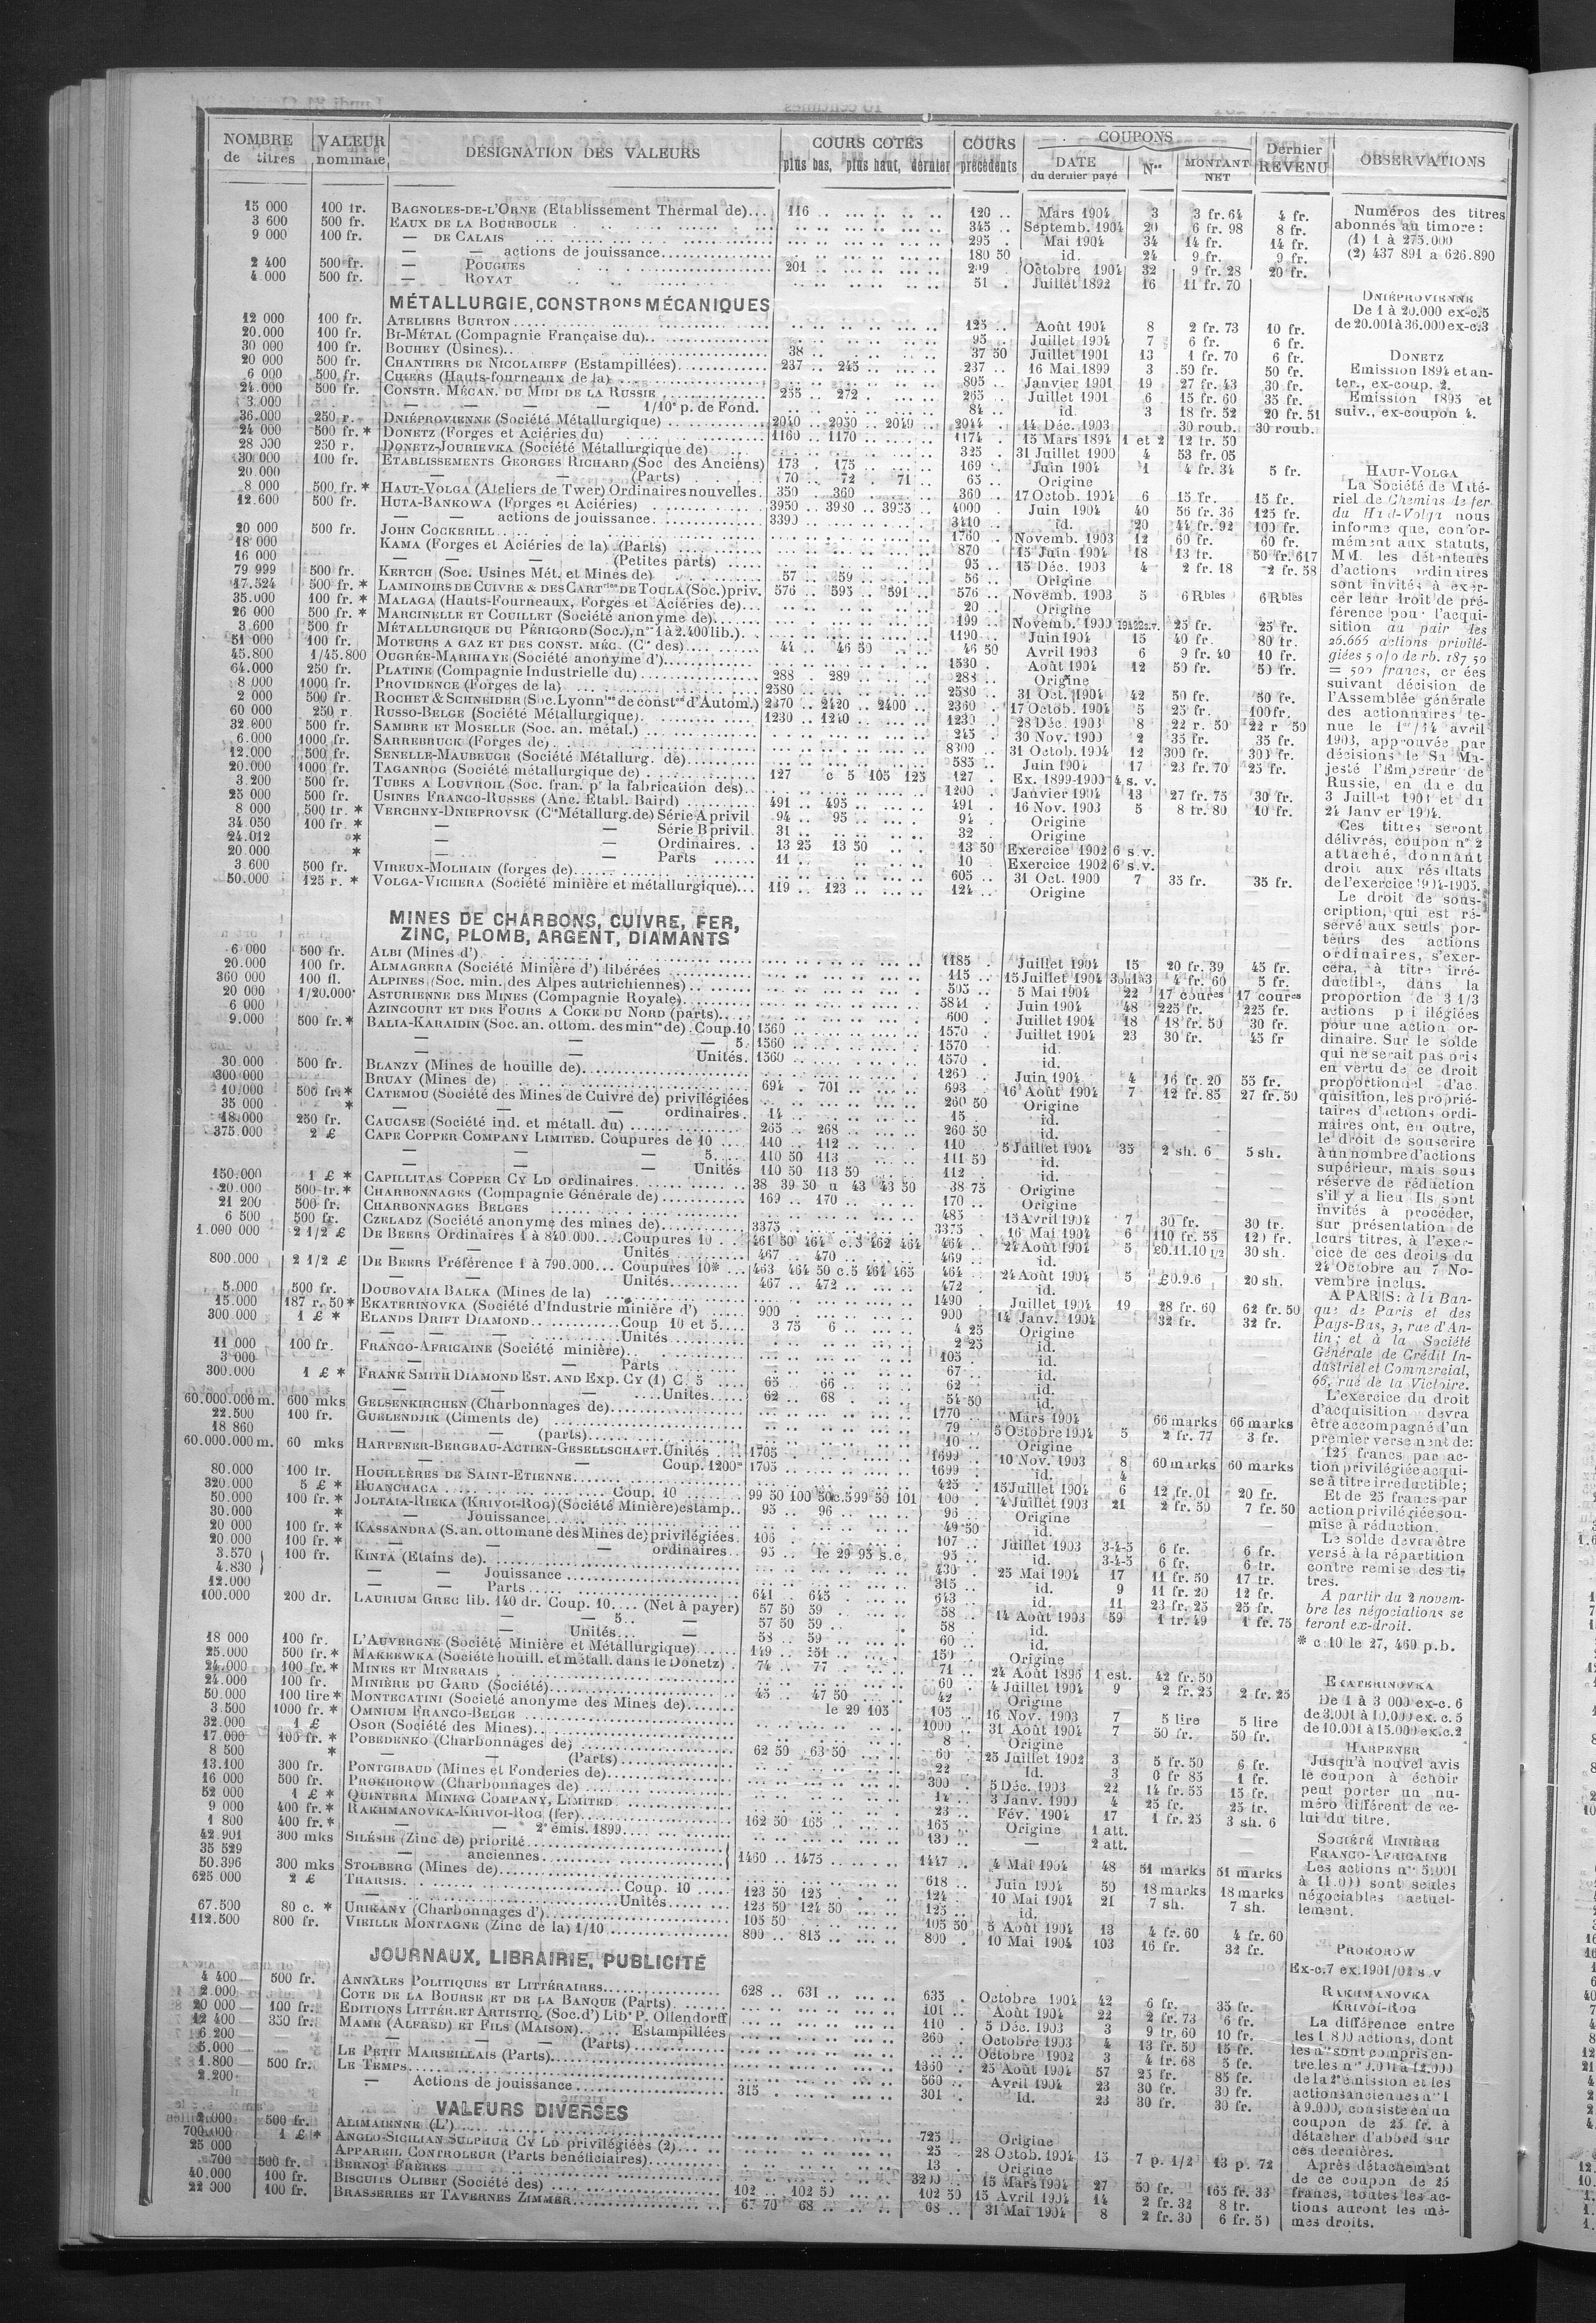 NOMBRE de titres | VALEUR nominale | DÉSIGNATION DES VALEURS | COURS COTÉS plus bas, plus haut, dernier | COURS précédents | COUPONS DATE du dernier payé | Nos | MONTANT NET | Dernier REVENU | OBSERVATIONS
15 000 100 fr. BAGNOLES-DE-L'ORNE (Etablissement Thermal de)... 116 .. 120 .. Mars 1904 3 3 fr. 64 4 fr.
3 600 500 fr. EAUX DE LA BOURBOULE 345 .. Septemb. 1904 20 6 fr. 98 8 fr.
9 000 100 fr. — DE CALAIS 295 . Mai 1904 34 14 fr. 14 fr.
— — actions de jouissance 180 50 id. 24 9 fr. 9 fr.
2 400 500 fr. — POUGUES 201 .. 209 . Octobre 1904 32 9 fr. 28 20 fr.
4.000 500 fr. — ROYAT 51 . Juillet 1892 16 11 fr. 70
MÉTALLURGIE, CONSTRons MÉCANIQUES
12 000 100 fr. ATELIERS BURTON 125 .. Août 1904 8 2 fr. 73 10 fr.
20.000 100 fr. BI-MÉTAL (Compagnie Française du) 95 . Juillet 1904 7 6 fr. 6 fr.
30 000 100 fr. BOUHEY (Usines) 38 .. 37 50 Juillet 1901 13 1 fr. 70 6 fr.
20 000 500 fr. CHANTIERS DE NICOLAIEFF (Estampillées) 237 .. 245 .. 237 .. 16 Mai 1899 3 50 fr. 50 fr.
6 000 500 fr. CHIERS (Hauts-fourneaux de la) 805 .. Janvier 1901 19 27 fr. 43 30 fr.
24.000 500 fr. CONSTR. MÉCAN. DU MIDI DE LA RUSSIE 255 .. 272 .. 265 .. Juillet 1901 6 15 fr. 60 35 fr.
3.000 — — — 1/10e p. de Fond. 84 .. id. 3 18 fr. 52 20 fr. 51
36.000 250 r. DNIÉPROVIENNE (Société Métallurgique) 2040 .. 2050 .. 2049 .. 2044 .. 14 Déc. 1903 30 roub. 30 roub.
24 000 500 fr. * DONETZ (Forges et Aciéries du) 1160 .. 1170 .. 1174 . 15 Mars 1894 1 et 2 12 fr. 50
28 000 250 r. DONETZ-JOURIEVKA (Société Métallurgique de) 325 . 31 Juillet 1900 4 53 fr. 05
30 000 100 fr. ETABLISSEMENTS GEORGES RICHARD (Soc des Anciens) 173 . 175 .. 169 . Juin 1904 1 4 fr. 34 5 fr.
20.000 — — (Parts) 70 .. 72 . 71 .. 65 .. Origine
8 000 500 fr. * HAUT-VOLGA (Ateliers de Twer) Ordinaires nouvelles. 350 . 360 .. 360 . 17 Octob. 1904 6 15 fr. 15 fr.
12.600 500 fr. HUTA-BANKOWA (Forges et Aciéries) 3950 .. 3980 .. 3955 .. 4000 .. Juin 1904 40 56 fr. 36 125 fr.
— — actions de jouissance 3390 .. 3410 .. id. 20 44 fr. 92 100 fr.
20 000 500 fr. JOHN COCKERILL 1760 .. Novemb. 1903 12 60 fr. 60 fr.
18 000 KAMA (Forges et Aciéries de la) (Parts) 870 . 15 Juin 1904 18 13 fr. 50 fr. 617
16 000 — — (Petites parts) 95 .. 15 Déc. 1903 4 2 fr. 18 2 fr. 58
79 999 500 fr. KERTCH (Soc. Usines Mét. et Mines de) 57 .. 59 .. 56 .. Origine
17.524 500 fr. * LAMINOIRS DE CUIVRE & DES CARTries DE TOULA (Soc.) priv. 576 .. 595 .. 591 .. 576 .. Novemb. 1903 5 6 Rbles 6 Rbles
35.000 100 fr. * MALAGA (Hauts-Fourneaux, Forges et Aciéries de) 20 .. Origine
26 000 500 fr. * MARCINELLE ET COUILLET (Société anonyme de) 199 .. Novemb. 1900 25 fr. 25 fr.
3.600 500 fr MÉTALLURGIQUE DU PÉRIGORD (Soc.), nos 1 à 2.400 lib.) 1190 .. Juin 1904 15 40 fr. 80 fr.
51 000 100 fr. MOTEURS A GAZ ET DES CONST. MÉC. (Cie des) 44 .. 46 50 .. 46 50 Avril 1903 6 9 fr. 40 10 fr.
45.800 1/45.800 OUGRÉE-MARIHAYE (Société anonyme d') 1530 . Août 1904 12 50 fr. 50 fr.
64.000 250 fr. PLATINE (Compagnie Industrielle du) 288 . 289 .. 288 .. Origine
8.000 1000 fr. PROVIDENCE (Forges de la) 2580 .. 2580 .. 31 Oct. 1904 42 50 fr. 60 fr.
2 000 500 fr. ROCHET & SCHNEIDER (Soc. Lyonnse de conston d'Autom.) 2370 .. 2420 .. 2400 .. 2360 .. 17 Octob. 1904 5 25 fr. 100 fr.
60 000 250 r. RUSSO-BELGE (Société Métallurgique) 1230 .. 1240 .. 1230 .. 28 Déc. 1903 8 22 r. 50 22 r 50
32.600 500 fr. SAMBRE ET MOSELLE (Soc. an. métal.) 245 .. 30 Nov. 1900 2 35 fr. 35 fr.
6.000 1000 fr. SARREBRUCK (Forges de) 8300 .. 31 Octob. 1904 12 300 fr. 300 fr.
12.000 500 fr. SENELLE-MAUBEUGE (Société Métallurg. de) 585 .. Juin 1904 17 23 fr. 70 25 fr.
20.000 1000 fr. TAGANROG (Société métallurgique de) 127 c 5 105 125 127 . Ex. 1899-1900 4 s. v.
3.200 500 fr. TUBES A LOUVROIL (Soc. fran. pr la fabrication des) 1200 . Janvier 1904 13 27 fr. 75 30 fr.
25 000 500 fr. USINES FRANCO-RUSSES (Anc. Etabl. Baird) 491 .. 495 .. 491 . 16 Nov. 1903 5 8 fr. 80 10 fr.
8 000 500 fr. * VERCHNY-DNIEPROVSK (Cie Métallurg. de) Série A privil 94 .. 95 .. 94 . Origine
34.050 100 fr. * — — Série B privil. 31 .. 32 . Origine
24.012 * — — Ordinaires. 13 25 13 50 13 50 Exercice 1902 6 s.v.
20.000 * — — Parts 11 .. 10 . Exercice 1902 6 s.v.
3.600 500 fr. VIREUX-MOLHAIN (forges de) 605 .. 31 Oct. 1900 7 35 fr. 35 fr.
50.000 125 r. * VOLGA-VICHERA (Société minière et métallurgique) 119 .. 123 .. 124 .. Origine
MINES DE CHARBONS, CUIVRE, FER,
ZINC, PLOMB, ARGENT, DIAMANTS
6 000 500 fr. ALBI (Mines d') 1185 . Juillet 1904 15 20 fr. 39 45 fr.
20.000 100 fr. ALMAGRERA (Société Minière d') libérées 115 .. 15 Juillet 1904 4 fr. 60 5 fr.
360 000 100 fl. ALPINES (Soc. min. des Alpes autrichiennes) 505 .. 5 Mai 1904 22 17 coures 17 coures
20 000 1/20.000e ASTURIENNE DES MINES (Compagnie Royale) 5841 . Juin 1904 48 225 fr. 225 fr.
6 000 AZINCOURT ET DES FOURS A COKE DU NORD (parts) 600 . Juillet 1904 18 18 fr. 50 30 fr.
9.000 500 fr. * BALIA-KARAIDIN (Soc. an. ottom. des mines de) Coup. 10 1560 .. 1570 . Juillet 1904 23 30 fr. 45 fr
— — — 5. 1560 .. 1570 .. id.
— — Unités. 1560 .. 1570 .. id.
30.000 500 fr. BLANZY (Mines de houille de) 1260 .. Juin 1904 4 16 fr. 20 55 fr.
300 000 BRUAY (Mines de) 694 . 701 .. 693 . 16 Août 1904 7 12 fr. 85 27 fr. 50
10.000 500 fr. * CATEMOU (Société des Mines de Cuivre de) privilégiées 260 50 Origine
35 000 * — — ordinaires. 14 .. 15 .. id.
18.000 250 fr. CAUCASE (Société ind. et métall. du) 265 .. 268 .. 260 50 id.
375.000 2 £ CAPE COPPER COMPANY LIMITED. Coupures de 10 110 .. 112 .. 110 .. 5 Juillet 1904 35 2 sh. 6 5 sh.
— — — 5. 110 50 113 .. 111 50 id.
— — — Unités 110 50 113 50 112 .. id.
150.000 1 £ * CAPILLITAS COPPER CY LD ordinaires 38 39 50 u 43 43 50 38 75 Origine
20.000 500 fr. * CHARBONNAGES (Compagnie Générale de) 169 .. 170 .. 170 .. Origine
21 200 500 fr. CHARBONNAGES BELGES 485 .. 15 Avril 1904 7 30 fr. 30 fr.
6 500 500 fr. CZELADZ (Société anonyme des mines de) 3375 .. 3375 .. 16 Mai 1904 6 110 fr. 55 120 fr.
1.000 000 2 1/2 £ DE BEERS Ordinaires 1 à 840.000 Coupures 10 461 50 464 c.5 462 464 464 .. 24 Août 1904 5 £0.11.10 1/2 30 sh.
— — Unités 467 .. 470 .. 469 .. id.
800.000 2 1/2 £ DE BEERS Préférence 1 à 790.000 Coupures 10* 463 464 50 c.5 464 465 464 .. 24 Août 1904 5 £0.9.6 20 sh.
— — Unités 467 .. 472 .. 472 .. id.
5.000 500 fr. DOUBOVAIA BALKA (Mines de la) 1490 .. Juillet 1904 19 28 fr. 60 62 fr. 50
15.000 187 r. 50 * EKATERINOVKA (Société d'Industrie minière d') 900 .. 900 .. 14 Janv. 1904 32 fr. 32 fr.
300 000 1 £ * ELANDS DRIFT DIAMOND Coup 10 et 5 3 75 6 .. 4 25 Origine
— — Unités 2 25 id.
11 000 100 fr. FRANCO-AFRICAINE (Société minière) 105 .. id.
3 000 — — Parts 67 .. id.
300.000 1 £ * FRANK SMITH DIAMOND EST. AND EXP. CY (1) C. 5 65 .. 66 .. 62 .. id.
— — Unites 62 .. 68 .. 54 50 id.
60.000.000 m. 600 mks GELSENKIRCHEN (Charbonnages de) 1770 .. Mars 1904 66 marks 66 marks
22.500 100 fr. GUELENDJIK (Ciments de) 79 .. 5 Octobre 1904 5 2 fr. 77 3 fr.
18 860 — (parts) 10 .. Origine
60.000.000 m. 60 mks HARPENER-BERGBAU-ACTIEN-GESELLSCHAFT. Unités 1705 .. 1699 .. 10 Nov. 1903 8 60 marks 60 marks
— — Coup. 1200m 1705 .. 1699 .. id. 4
80.000 100 fr. HOUILLÈRES DE SAINT-ETIENNE 425 .. 15 Juillet 1904 6 12 fr. 01 20 fr.
320.000 5 £ * HUANCHACA Coup. 10 99 50 100 50 c.5 99 50 101 100 .. 4 Juillet 1903 21 2 fr. 50 7 fr. 50
50.000 100 fr. * JOLTAIA-RIEKA (KRIVOI-ROG) (Société Minière) estamp. 95 .. 96 .. 96 .. Origine
30.000 * — Jouissance 49 50 id.
20 000 100 fr. * KASSANDRA (S. an. ottomane des Mines de) privilégiées. 106 .. 107 .. Juillet 1903 3-4-5 6 fr. 6 fr.
20.000 100 fr. * — — ordinaires 95 .. le 29 95 s.c. 95 .. id. 3-4-5 6 fr. 6 fr.
3.570 100 fr. KINTA (Etains de) 430 . 25 Mai 1904 17 11 fr. 50 17 fr.
4.830 — — Jouissance 315 .. id. 9 11 fr. 20 12 fr.
12.000 — — Parts 641 .. 645 .. 643 .. id. 11 23 fr. 25 25 fr.
100.000 200 dr. LAURIUM GREC lib. 140 dr. Coup. 10 (Net à payer) 57 50 59 .. 58 .. 14 Août 1903 59 1 fr. 49 1 fr. 75
— — 5 57 50 59 .. 58 . id.
— — Unités 58 .. 59 .. 60 .. id.
18 000 100 fr. L'AUVERGNE (Société Minière et Métallurgique) 149 .. 151 .. 150 .. Origine
25.000 500 fr. * MAKEEWKA (Société houill. et métall. dans le Donetz) 74 .. 77 . 71 .. 24 Août 1896 1 est. 42 fr. 50
24.000 100 fr. * MINES ET MINERAIS 60 .. 4 Juillet 1904 9 2 fr. 25 2 fr. 25
24.000 100 fr. MINIÈRE DU GARD (Société) 45 .. 47 50 .. 42 .. Origine
50.000 100 lire * MONTECATINI (Societé anonyme des Mines de) le 29 105 105 .. 16 Nov. 1903 7 5 lire 5 lire
3.500 1000 fr. * OMNIUM FRANCO-BELGE 1000 .. 31 Août 1904 7 50 fr. 50 fr.
32.000 1 £ OSOR (Société des Mines) 8 . Origine
17.000 100 fr. * POBEDENKO (Charbonnages de) 62 50 63 50 60 .. 25 Juillet 1902 3 5 fr. 50 6 fr.
8 500 * — — (Parts) 22 .. Id. 3 0 fr 85 1 fr.
13.100 300 fr. PONTGIBAUD (Mines et Fonderies de) 300 . 5 Déc. 1903 22 14 fr. 55 15 fr.
16 000 500 fr. PROKHOROW (Charbonnages de) 14 .. 3 Janv. 1900 4 25 fr. 25 fr.
52 000 1 £ * QUINTERA MINING COMPANY, LIMITED 23 .. Fév. 1904 17 1 fr. 25 3 sh. 6
9 000 400 fr. * RAKHMANOVKA-KRIVOI-ROG (fer) 162 50 165 .. 165 .. Origine 1 att.
1 800 400 fr. * — — 2e émis. 1899 130 .. — 2 att.
42.901 300 mks SILÉSIE (Zinc de) priorité
35 529 — anciennes 1460 .. 1475 .. 1447 .. 4 Mai 1904 48 51 marks 51 marks
50.396 300 mks STOLBERG (Mines de) 618 .. Juin 1904 50 18 marks 18 marks
625.000 2 £ THARSIS Coup. 10 123 50 125 .. 124 . 10 Mai 1904 21 7 sh. 7 sh.
— Unités 123 50 124 50 125 .. id.
67.500 80 c. * URIKANY (Charbonnages d') 105 50 105 50 5 Août 1904 13 4 fr. 60 4 fr. 60
112.500 800 fr. VIEILLE MONTAGNE (Zinc de la) 1/10 800 .. 815 .. 800 . 10 Mai 1904 103 16 fr. 32 fr.
JOURNAUX, LIBRAIRIE, PUBLICITÉ
4 400 500 fr. ANNALES POLITIQUES ET LITTÉRAIRES 628 .. 631 .. 635 .. Octobre 1904 42 6 fr. 35 fr.
2.000 COTE DE LA BOURSE ET DE LA BANQUE (Parts) 101 .. Août 1904 22 2 fr. 73 6 fr.
20 000 100 fr. EDITIONS LITTÉR. ET ARTISTIQ. (Soc. d') Libie P. Ollendorff 110 .. 5 Déc. 1903 3 9 fr. 60 10 fr.
12 400 350 fr. MAME (ALFRED) ET FILS (MAISON) Estampillées 360 . Octobre 1903 4 13 fr. 50 15 fr.
6.200 — (Parts) Octobre 1902 3 4 fr. 68 5 fr.
5.000 LE PETIT MARSEILLAIS (Parts) 1360 . 25 Août 1904 57 25 fr. 85 fr.
1.800 500 fr. LE TEMPS 560 .. Avril 1904 23 30 fr. 30 fr.
2.200 — Actions de jouissance 315 . 301 . Id. 23 30 fr. 30 fr.
VALEURS DIVERSES
2.000 500 fr. ALIMAIENNE (L')
700.000 1 £ * ANGLO-SICILIAN SULPHUR CY LD privilégiées (2) 725 .. Origine
25 000 APPAREIL CONTROLEUR (Parts bénéficiaires) 25 . 28 Octob. 1904 15 7 p. 1/2 13 p. 72
700 500 fr. BERNOT FRÈRES 13 . Origine
40.000 100 fr. BISCUITS OLIBET (Société des) 102 .. 102 50 102 50 15 Avril 1904 14 2 fr. 32 8 fr.
22 000 100 fr. BRASSERIES ET TAVERNES ZIMMER 67 70 68 .. 68 .. 31 Mai 1904 8 2 fr. 30 6 fr. 50
Numéros des titres
abonnés au timbre :
(1) 1 à 275.000
(2) 437 891 à 626.890
DNIÉPROVIENNE
De 1 à 20.000 ex-c.5
de 20.001 à 36.000 ex-c.3
DONETZ
Emission 1894 et an-
ter., ex-coup. 2.
Emission 1895 et
suiv., ex-coupon 4.
HAUT-VOLGA
La Société de Maté-
riel de Chemins de fer
du Haut-Volga nous
informe que, confor-
mément aux statuts,
MM. les détenteurs
d'actions ordinaires
sont invités à exer-
cer leur droit de pré-
férence pour l'acqui-
sition au pair des
26.666 actions privilé-
giées 5 o/o de rb. 187 50
= 500 francs, créées
suivant décision de
l'Assemblée générale
des actionnaires te-
nue le 1er/14 avril
1903, approuvée par
décisions de Sa Ma-
jesté l'Empereur de
Russie, en date du
3 Juillet 1903 et du
24 Janvier 1904.
Ces titres seront
délivrés, coupon n° 2
attaché, donnant
droit aux résultats
de l'exercice 1904-1905.
Le droit de sous-
cription, qui est ré-
servé aux seuls por-
teurs des actions
ordinaires, s'exer-
cera, à titre irré-
ductible, dans la
proportion de 3 1/3
actions privilégiées
pour une action or-
dinaire. Sur le solde
qui ne serait pas pris
en vertu de ce droit
proportionnel d'ac-
quisition, les proprié-
taires d'actions ordi-
naires ont, en outre,
le droit de souscrire
à un nombre d'actions
supérieur, mais sous
réserve de réduction
s'il y a lieu Ils sont
invités à procéder,
sur présentation de
leurs titres, à l'exer-
cice de ces droits du
24 Octobre au 7 No-
vembre inclus.
A PARIS : à la Ban-
que de Paris et des
Pays-Bas, 3, rue d'An-
tin ; et à la Société
Générale de Crédit In-
dustriel et Commercial,
66, rue de la Victoire.
L'exercice du droit
d'acquisition devra
être accompagné d'un
premier versement de:
125 francs par ac-
tion privilégiée acqui-
se à titre irréductible;
Et de 25 francs par
action privilégiée sou-
mise à réduction.
Le solde devra être
versé à la répartition
contre remise des ti-
tres.
A partir du 2 novem-
bre les négociations se
feront ex-droit.
* c 10 le 27, 469 p.b.
EKATERINOVKA
De 1 à 3 000 ex-c. 6
de 3.001 à 10.000 ex. c. 5
de 10.001 à 15.000 ex. c. 2
HARPENER
Jusqu'à nouvel avis
le coupon à échoir
peut porter un nu-
méro différent de ce-
lui du titre.
SOCIÉTÉ MINIÈRE
FRANCO-AFRICAINE
Les actions nos 5.001
à 11.000 sont seules
négociables actuel-
lement.
PROKOROW
Ex-c.7 ex.1901/02 s v
RAKHMANOVKA
KRIVOÏ-ROG
La différence entre
les 1.800 actions, dont
les nos sont compris en-
tre les nos 9.001 à 12.000
de la 2e émission et les
actions anciennes nos 1
à 9.000, consiste en un
coupon de 25 fr. à
détacher d'abord sur
ces dernières.
Après détachement
de ce coupon de 25
francs, toutes les ac-
tions auront les mê-
mes droits.